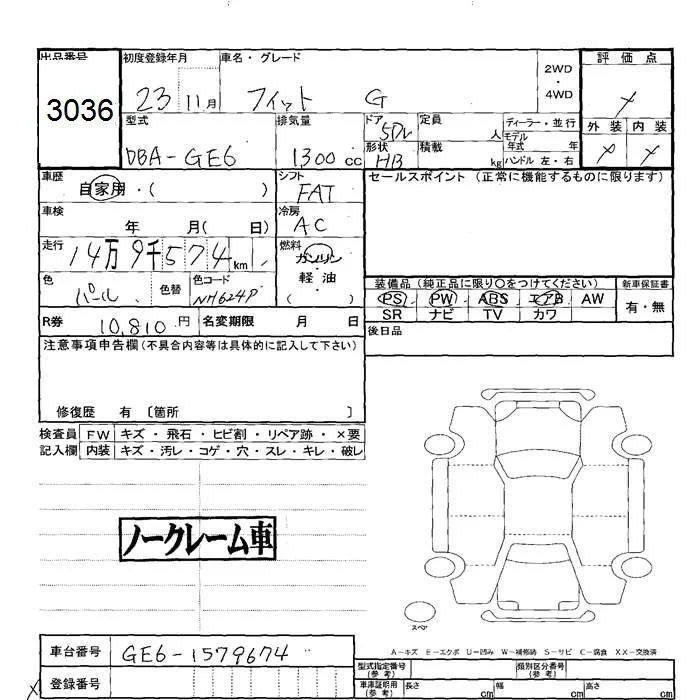 出品番号 初度登録年月 車名・グレード 2WD 評価点
3036 23 11月 フィット G 4WD
型式 排気量 ドア 5Dr 定員 人 ディーラー・並行 外装 内装
DBA-GE6 1300cc 形状 HB 積載 kg モデル年式 年 ハンドル 左・右
車歴 自家用・( ) シフト FAT セールスポイント (正常に機能するものに限ります)
車検 年 月( 日) 冷房 AC
走行 14万9千574km 燃料 ガソリン
色 パール 色替 色コード NH624P 軽油 ( )
装備品 (純正品に限り○をつけてください) 新車保証書
PS PW ABS エアB AW 有・無
SR ナビ TV カワ
R券 10,810円 名変期限 月 日 後日品
注意事項申告欄(不具合内容等は具体的に記入して下さい)
修復歴 有 〔箇所 〕
検査員 FW キズ・飛石・ヒビ割・リペア跡・×要
記入欄 内装 キズ・汚レ・コゲ・穴・スレ・キレ・破レ
ノークレーム車
スペア
A-キズ E-エクボ U-凹み W-補修跡 S-サビ C-腐食 XX-交換済
車台番号 GE6-1579674 型式指定番号 (参考) 類別区分番号 (参考)
登録番号 車庫証明用 (参考) 長さ cm 幅 cm 高さ cm